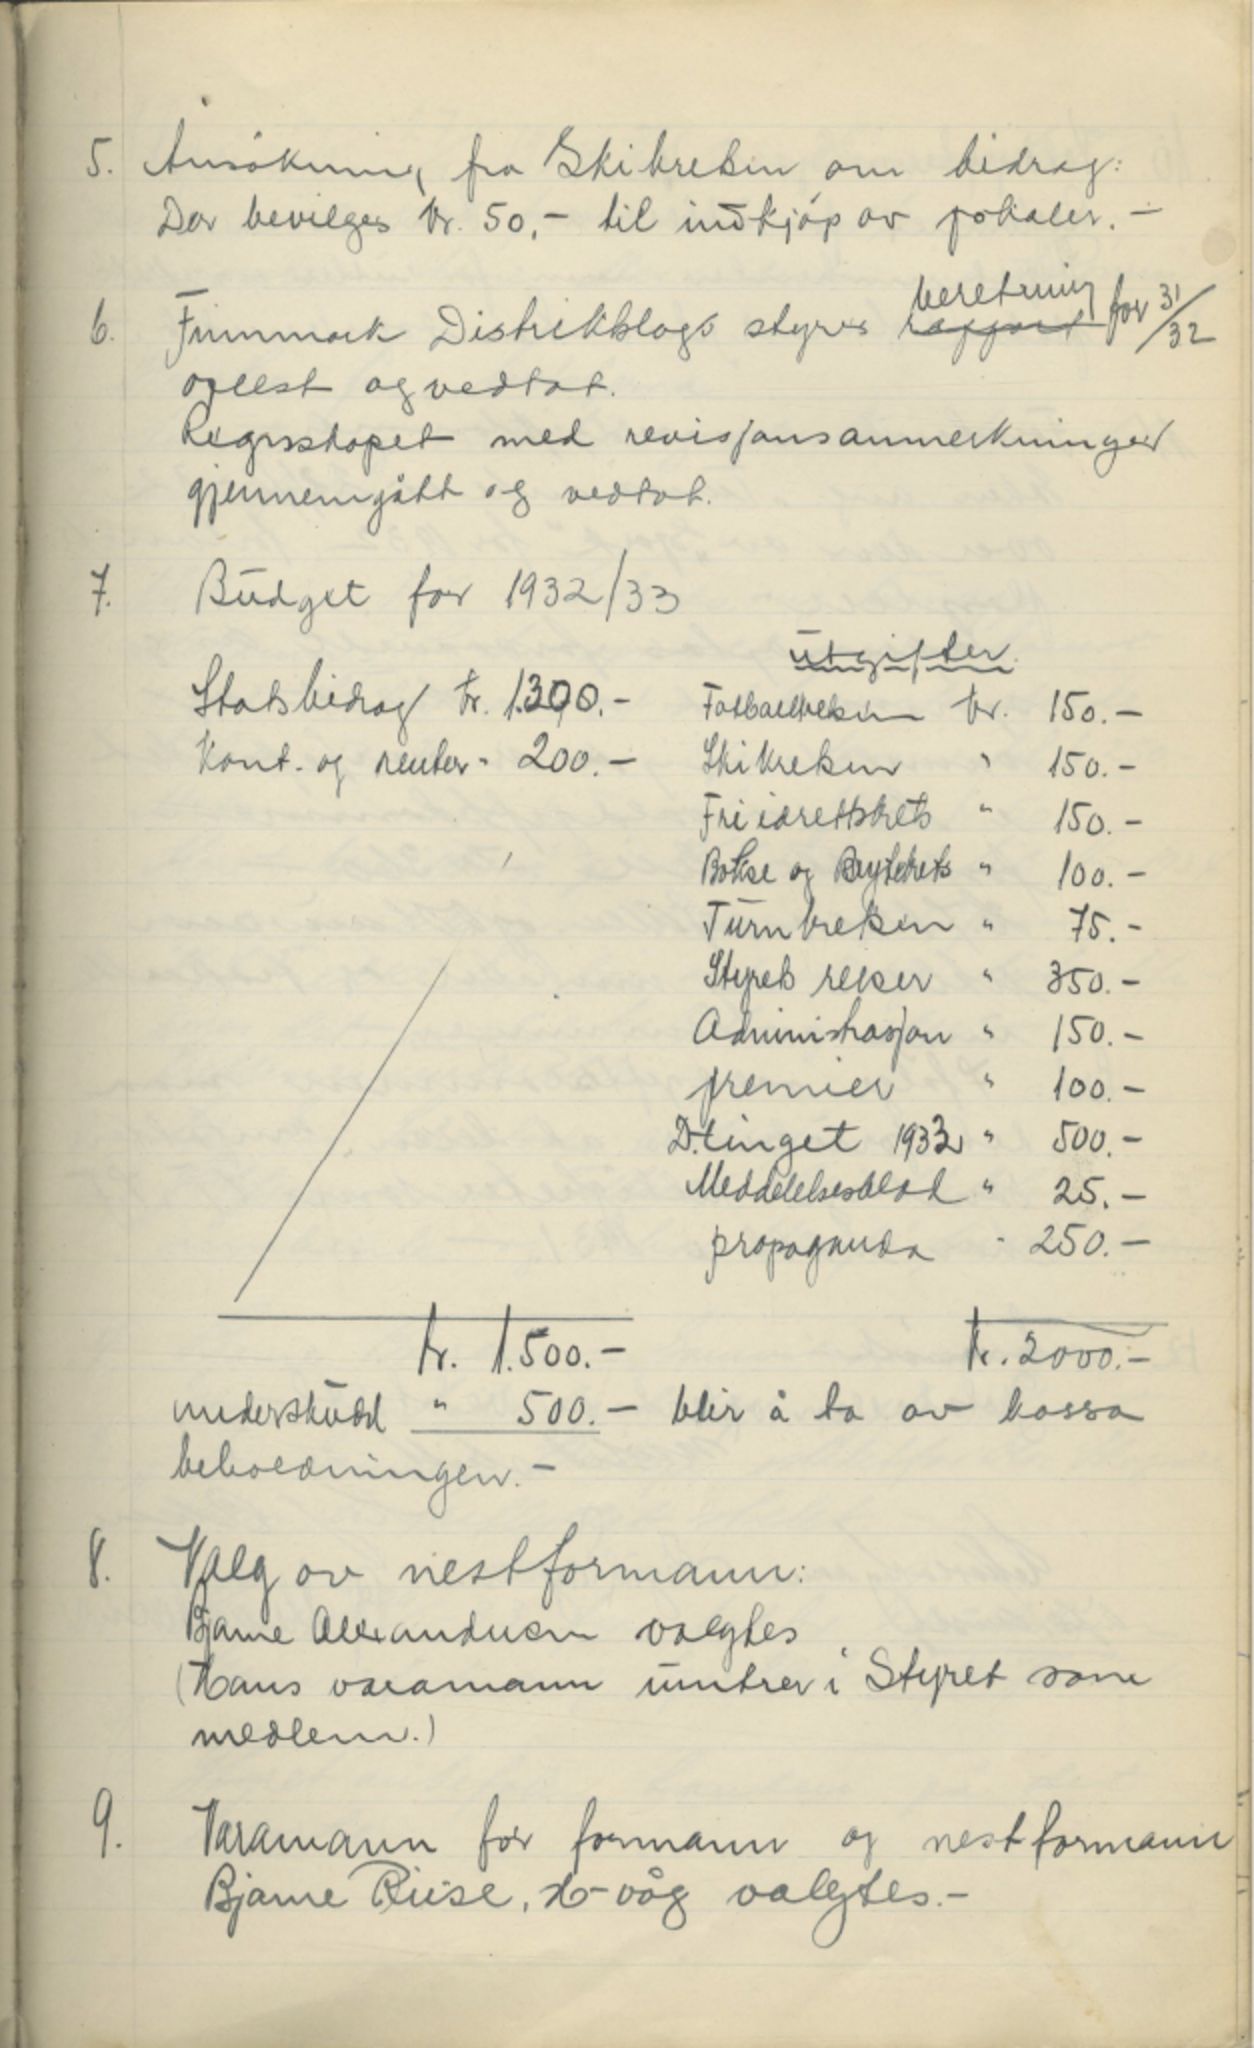 5. Ansökning fra Skikretsen om bidrag:
Der bevilges kr. 50,- til indkjøp av pokaler. -
6. Finnmark Distriktslags styres rapport beretning for 31/32
oplest og vedtat.
Regnskapet med revisjonsanmerkninger
gjennemgått og vedtat.
7. Budget for 1932/33
Utgifter
Statsbidrag kr. 1300.- Fotballkretsen kr. 150.-
Kont. og renter " 200.- Skikretsen " 150.-
Fri idrettskrets " 150.-
Bokse og Brytekrets " 100.-
Turnkretsen " 75.-
Styrets reiser " 350.-
Administrasjon " 150.-
premier " 100.-
D.tinget 1933 " 500.-
Meddelelsesblad " 25.-
propaganda " 250.-
kr. 1.500.- kr. 2000.-
underskudd " 500.- blir å ta av kassa
beholdningen. -
8. Valg av nestformann:
Bjarne Alexandersen valgtes
(Hans varamann inntrer i Styret som
medlem.)
9. Varamann for formann og nestformann
Bjarne Riise, H-våg valgtes. -